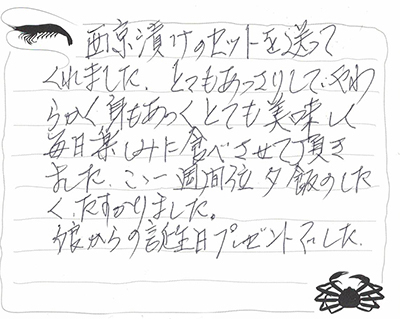 西京漬けのセットを送って
くれました。とてもあっさりして、やわ
らかく身もあつくとても美味しく
毎日楽しみに食べさせて頂き
ました。ここ一週間位夕飯のした
く、たすかりました。
娘からの誕生日プレゼントでした。